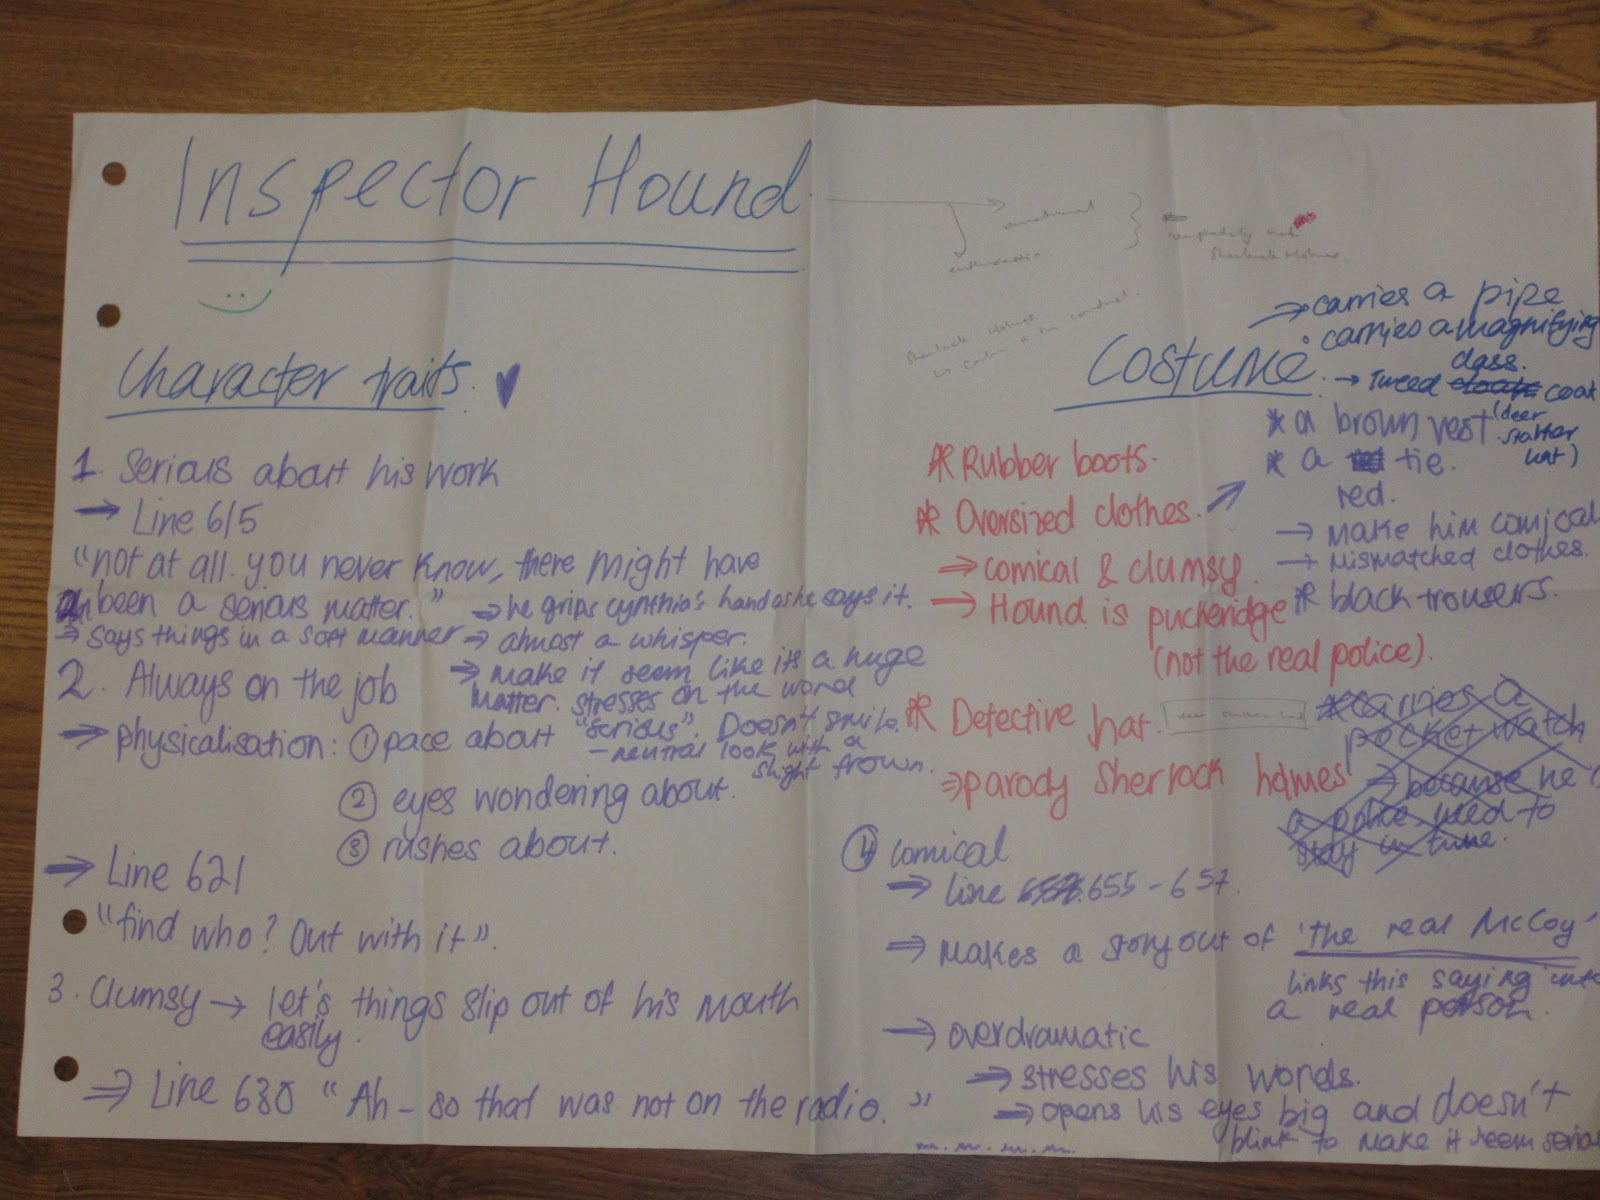 Inspector Hound
Sherlock Holmes
Sherlock Holmes
Character traits.
1. Serious about his work
→ Line 615
"not at all. you never know, there might have
been a serious matter."
⇒ he grips cynthia's hand as he says it.
⇒ says things in a soft manner
⇒ almost a whisper.
⇒ make it seem like its a huge
matter. stresses on the word
"serious". Doesn't smile.
– neutral look with a
slight frown.
2. Always on the job
→ physicalisation: ① pace about
② eyes wondering about.
③ rushes about.
→ Line 621
"find who? Out with it".
3. Clumsy → let's things slip out of his mouth
easily.
⇒ Line 630 "Ah – so that was not on the radio."
Costume.
→ carries a pipe
• carries a magnifying
class.
→ Tweed cloak coat
(deer
stalker
hat)
* a brown vest
* a tie.
red.
→ Make him comical
→ Mismatched clothes.
* black trousers.
* Rubber boots.
* Oversized clothes.
⇒ comical & clumsy.
→ Hound is puckeridge
(not the real police).
* Detective hat.
⇒ parody Sherlock holmes
*carries a
pocket watch
⇒ because he's
a police need to
stay in tune.
④ comical
⇒ line 655 – 657.
⇒ Makes a story out of 'The real McCoy'
links this saying into
a real person.
→ overdramatic
⇒ stresses his words.
⇒ opens his eyes big and doesn't
blink to make it seem serious